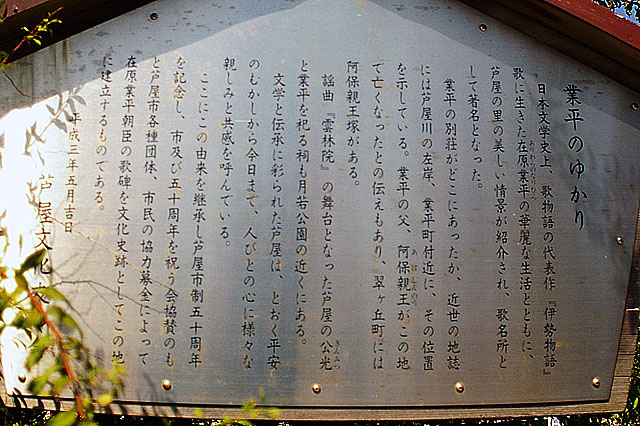 業平のゆかり
日本文学史上、歌物語の代表作『伊勢物語』
歌に生きた在原業平の華麗な生活とともに、
芦屋の里の美しい情景が紹介され、歌名所と
して著名となった。
業平の別荘がどこにあったか、近世の地誌
には芦屋川の左岸、業平町付近に、その位置
を示している。業平の父、阿保親王がこの地
で亡くなったとの伝えもあり、翠ヶ丘町には
阿保親王塚がある。
謡曲『雲林院』の舞台となった芦屋の公光
と業平を祀る祠も月若公園の近くにある。
文学と伝承に彩られた芦屋は、とおく平安
のむかしから今日まで、人びとの心に様々な
親しみと共感を呼んでいる。
ここにこの由来を継承し芦屋市制五十周年
を記念し、市及び五十周年を祝う会協賛のも
と芦屋市各種団体、市民の協力募金によって
在原業平朝臣の歌碑を文化史跡としてこの地
に建立するものである。
平成三年五月吉日
芦屋文化